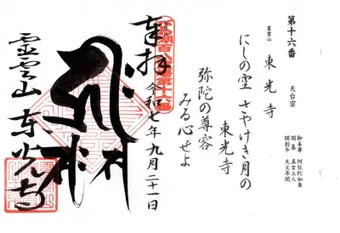 第十六番
霊雲山 東光寺 天台宗
御本尊 阿弥陀如来
開基 真雲上人
開創年 天文年間
にしの空 さやけき月の
東光寺
弥陀の尊容
みる心せよ
奉拝
令和七年九月二十一日
霊雲山 東光寺